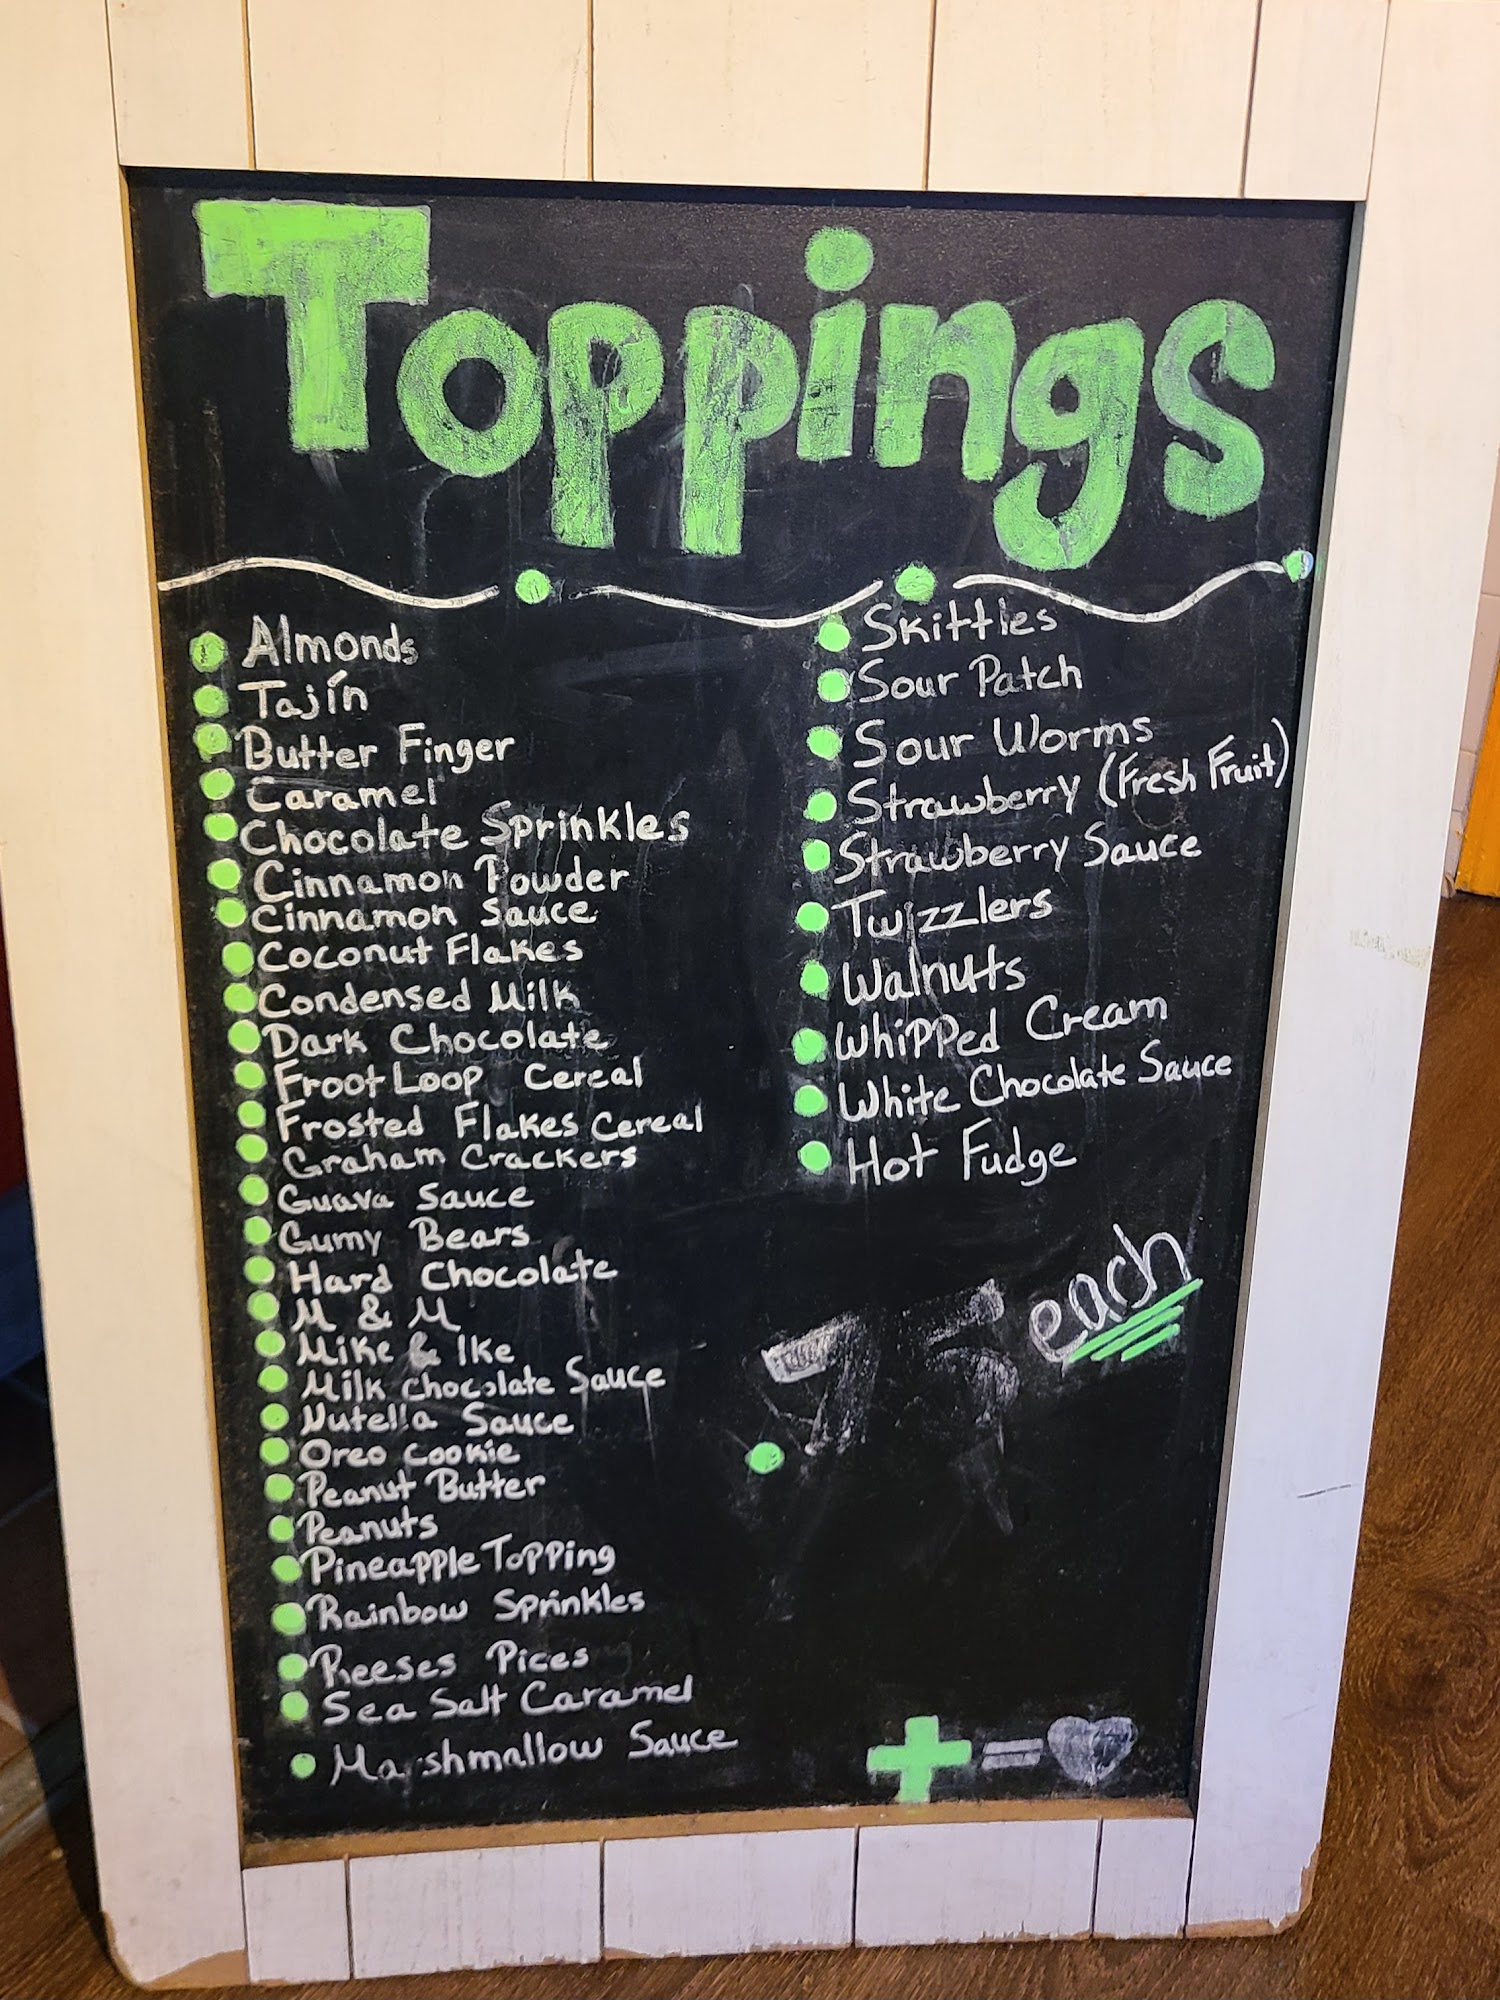 Toppings
Almonds
Tajín
Butter Finger
Caramel
Chocolate Sprinkles
Cinnamon Powder
Cinnamon Sauce
Coconut Flakes
Condensed Milk
Dark Chocolate
Froot Loop Cereal
Frosted Flakes Cereal
Graham Crackers
Guava Sauce
Gumy Bears
Hard Chocolate
M & M
Mike & Ike
Milk Chocolate Sauce
Nutella Sauce
Oreo Cookie
Peanut Butter
Peanuts
Pineapple Topping
Rainbow Sprinkles
Reeses Pices
Sea Salt Caramel
Marshmallow Sauce
Skittles
Sour Patch
Sour Worms
Strawberry (Fresh Fruit)
Strawberry Sauce
Twizzlers
Walnuts
Whipped Cream
White Chocolate Sauce
Hot Fudge
each
+ =